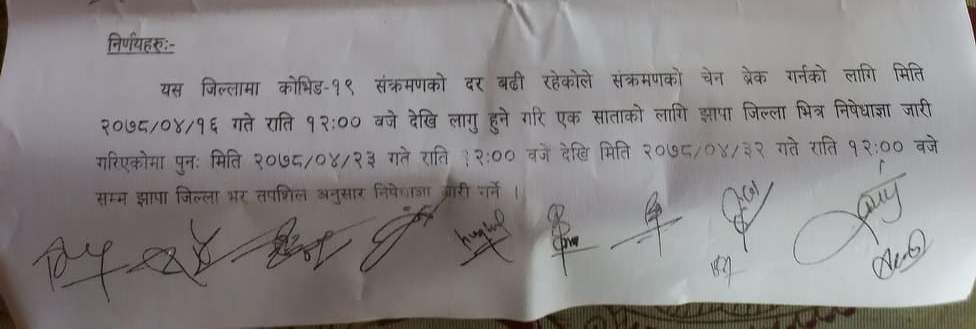 निर्णयहरुः-
यस जिल्लामा कोभिड-१९ संक्रमणको दर बढी रहेकोले संक्रमणको चेन ब्रेक गर्नको लागि मिति
२०७८/०४/१६ गते राति १२:०० वजे देखि लागु हुने गरि एक साताको लागि झापा जिल्ला भित्र निषेधाज्ञा जारी
गरिएकोमा पुनः मिति २०७८/०४/२३ गते राति १२:०० वजे देखि मिति २०७८/०४/३२ गते राति १२:०० वजे
सम्म झापा जिल्ला भर तपशिल अनुसार निषेधाज्ञा जारी गर्ने ।